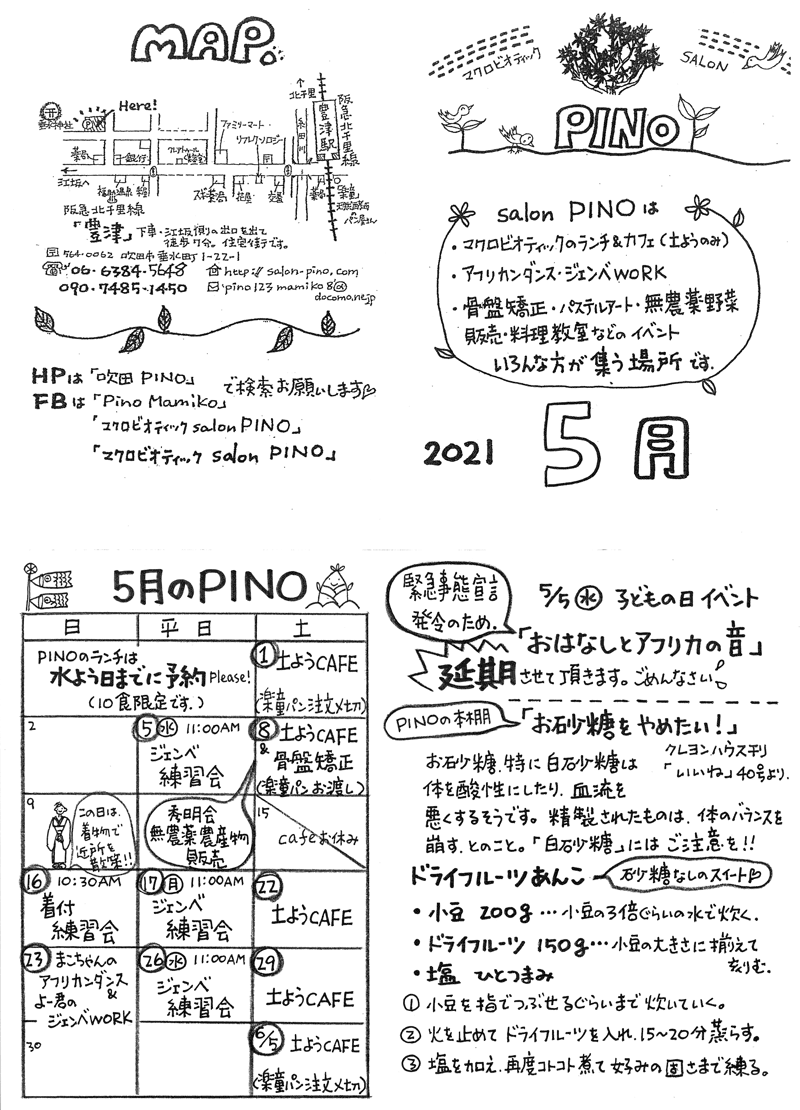 MAP.
Here!
PINO
ファミリーマート
リアルクソロジー
糸田川
北千里
豊津駅
阪急北千里線
江坂へ
花屋
交番
楽童
パン屋さん
阪急北千里線
「豊津」下車・江坂側の出口を出て
徒歩7分。住宅街です。
564-0062 吹田市垂水町1-22-1
06-6384-5648
http://salon-pino.com
090-7485-1450
pino123mamiko8@
docomo.ne.jp
HPは「吹田PINO」
で検索お願いします♡
FBは「Pino Mamiko」
「マクロビオティックsalon PINO」
「マクロビオティック salon PINO」
マクロビオティック
SALON
PINO
salon PINOは
・マクロビオティックのランチ&カフェ(土ようのみ)
・アフリカンダンス・ジェンベWORK
・骨盤矯正・パステルアート・無農薬野菜
販売・料理教室などのイベント
いろんな方が集う場所です.
2021 5月
5月のPINO
日 平日 土
PINOのランチは
水よう日までに予約Please!
(10食限定です.)
1 土ようCAFE
(楽童パン注文〆切)
2
5 水 11:00AM
ジェンベ
練習会
8 土ようCAFE
&
骨盤矯正
(楽童パンお渡し)
9
この日は、
着物で
近所を
散策!!
秀明会
無農薬農産物
販売
15
cafeお休み
16 10:30AM
着付
練習会
17 月 11:00AM
ジェンベ
練習会
22
土ようCAFE
23 まこちゃんの
アフリカンダンス
&
よー君の
ジェンベWORK
26 水 11:00AM
ジェンベ
練習会
29
土ようCAFE
30
6/5 土ようCAFE
(楽童パン注文〆切)
緊急事態宣言
発令のため.
5/5 水 子どもの日イベント
「おはなしとアフリカの音」
延期させて頂きます。ごめんなさい
PINOの本棚
「お砂糖をやめたい!」
クレヨンハウス予リ
「いいね」40号より.
お砂糖.特に白砂糖は
体を酸性にしたり.血流を
悪くするそうです。精製されたものは、体のバランスを
崩す.とのこと。「白砂糖」にはご注意を!!
ドライフルーツあんこ
砂糖なしのスイート♡
・小豆 200g…小豆の3倍ぐらいの水で炊く.
・ドライフルーツ 150g…小豆の大きさに揃えて
刻む.
・塩 ひとつまみ
① 小豆を指でつぶせるぐらいまで炊いていく。
② 火を止めてドライフルーツを入れ.15〜20分蒸らす。
③ 塩を加え.再度コトコト煮て好みの固さまで練る。